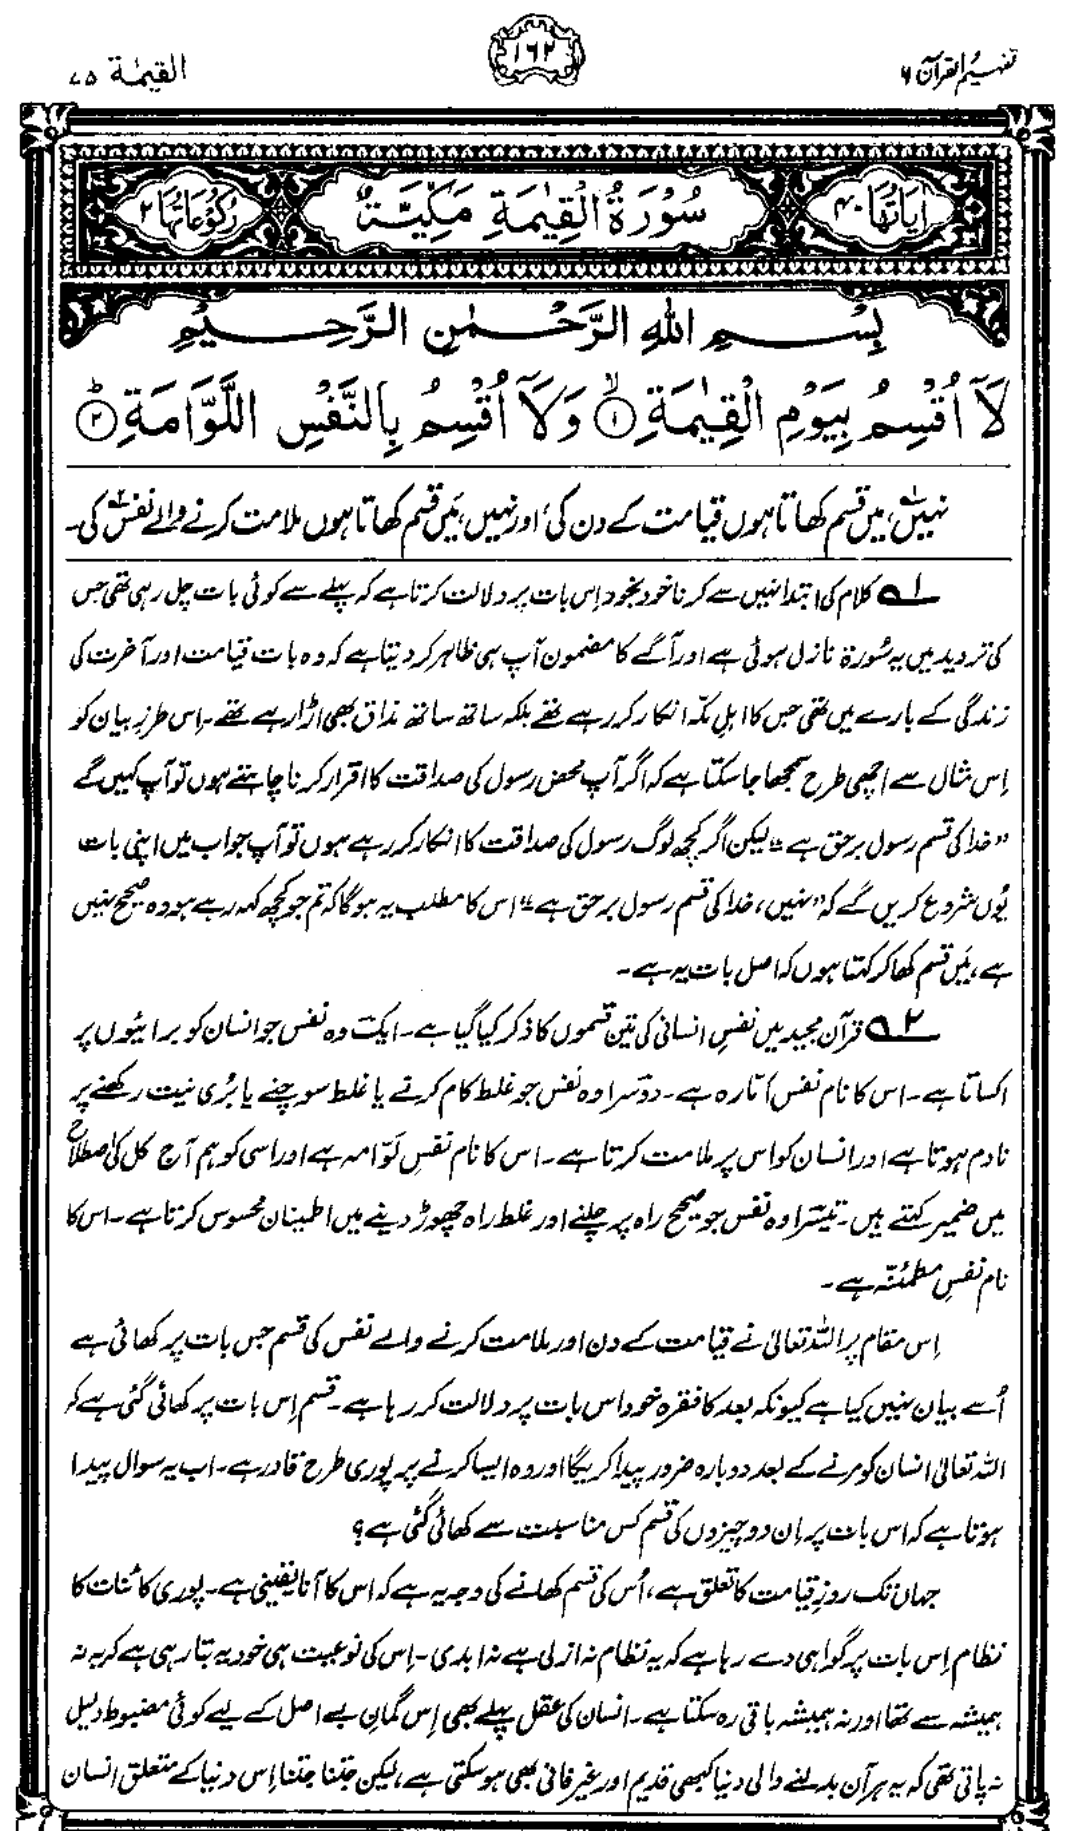 تفہیم القرآن ۶
۱۶۲
القیٰمۃ ۷۵
اٰیَاتُهَا ۴۰
سُوْرَةُ الْقِيٰمَةِ مَكِّيَّةٌ
رُكُوْعَاتُهَا ۲
بِسْمِ اللّٰهِ الرَّحْمٰنِ الرَّحِيْمِ
لَاۤ اُقْسِمُ بِيَوْمِ الْقِيٰمَةِ ۙ﴿۱﴾ وَلَاۤ اُقْسِمُ بِالنَّفْسِ اللَّوَّامَةِ ؕ﴿۲﴾
نہیں،۱؎ میں قسم کھاتا ہوں قیامت کے دن کی، اور نہیں، مَیں قسم کھاتا ہوں ملامت کرنے والے نفس۲؎ کی۔
۱؎ کلام کی ابتدا نہیں سے کرنا خود بخود اِس بات پر دلالت کرتا ہے کہ پہلے سے کوئی بات چل رہی تھی جس
کی تردید میں یہ سُورۃ نازل ہوئی ہے اور آگے کا مضمون آپ ہی ظاہر کر دیتا ہے کہ وہ بات قیامت اور آخرت کی
زندگی کے بارے میں تھی جس کا اہلِ مکّہ انکار کر رہے تھے بلکہ ساتھ ساتھ مذاق بھی اڑا رہے تھے۔ اِس طرزِ بیان کو
اِس مثال سے اچھی طرح سمجھا جا سکتا ہے کہ اگر آپ محض رسول کی صداقت کا اقرار کرنا چاہتے ہوں تو آپ کہیں گے
”خدا کی قسم رسول برحق ہے“ لیکن اگر کچھ لوگ رسول کی صداقت کا انکار کر رہے ہوں تو آپ جواب میں اپنی بات
یُوں شروع کریں گے کہ ”نہیں، خدا کی قسم رسول برحق ہے“ اس کا مطلب یہ ہوگا کہ تم جو کچھ کہہ رہے ہو وہ صحیح نہیں
ہے، مَیں قسم کھا کر کہتا ہوں کہ اصل بات یہ ہے۔
۲؎ قرآن مجید میں نفسِ انسانی کی تین قسموں کا ذکر کیا گیا ہے۔ ایک وہ نفس جو انسان کو برائیوں پر
اکساتا ہے۔ اس کا نام نفس اَمّارہ ہے۔ دوسرا وہ نفس جو غلط کام کرنے یا غلط سوچنے یا بُری نیت رکھنے پر
نادم ہوتا ہے اور انسان کو اس پر ملامت کرتا ہے۔ اس کا نام نفسِ لَوّامہ ہے اور اسی کو ہم آج کل کی اصطلاح
میں ضمیر کہتے ہیں۔ تیسرا وہ نفس جو صحیح راہ پر چلنے اور غلط راہ چھوڑ دینے میں اطمینان محسوس کرتا ہے۔ اس کا
نام نفسِ مطمئنّہ ہے۔
اِس مقام پر اللہ تعالیٰ نے قیامت کے دن اور ملامت کرنے والے نفس کی قسم جس بات پر کھائی ہے
اُسے بیان نہیں کیا ہے کیونکہ بعد کا فقرہ خود اس بات پر دلالت کر رہا ہے۔ قسم اِس بات پر کھائی گئی ہے کہ
اللہ تعالیٰ انسان کو مرنے کے بعد دوبارہ ضرور پیدا کریگا اور وہ ایسا کرنے پر پوری طرح قادر ہے۔ اب یہ سوال پیدا
ہوتا ہے کہ اس بات پر اِن دو چیزوں کی قسم کس مناسبت سے کھائی گئی ہے؟
جہاں تک روزِ قیامت کا تعلق ہے، اُس کی قسم کھانے کی وجہ یہ ہے کہ اس کا آنا یقینی ہے۔ پوری کائنات کا
نظام اِس بات پر گواہی دے رہا ہے کہ یہ نظام نہ ازلی ہے نہ ابدی۔ اِس کی نوعیت ہی خود یہ بتا رہی ہے کہ یہ نہ
ہمیشہ سے تھا اور نہ ہمیشہ باقی رہ سکتا ہے۔ انسان کی عقل پہلے بھی اِس گمانِ بے اصل کے لیے کوئی مضبوط دلیل
نہ پاتی تھی کہ یہ ہر آن بدلنے والی دنیا کبھی قدیم اور غیر فانی بھی ہو سکتی ہے، لیکن جتنا جتنا اِس دنیا کے متعلق انسان